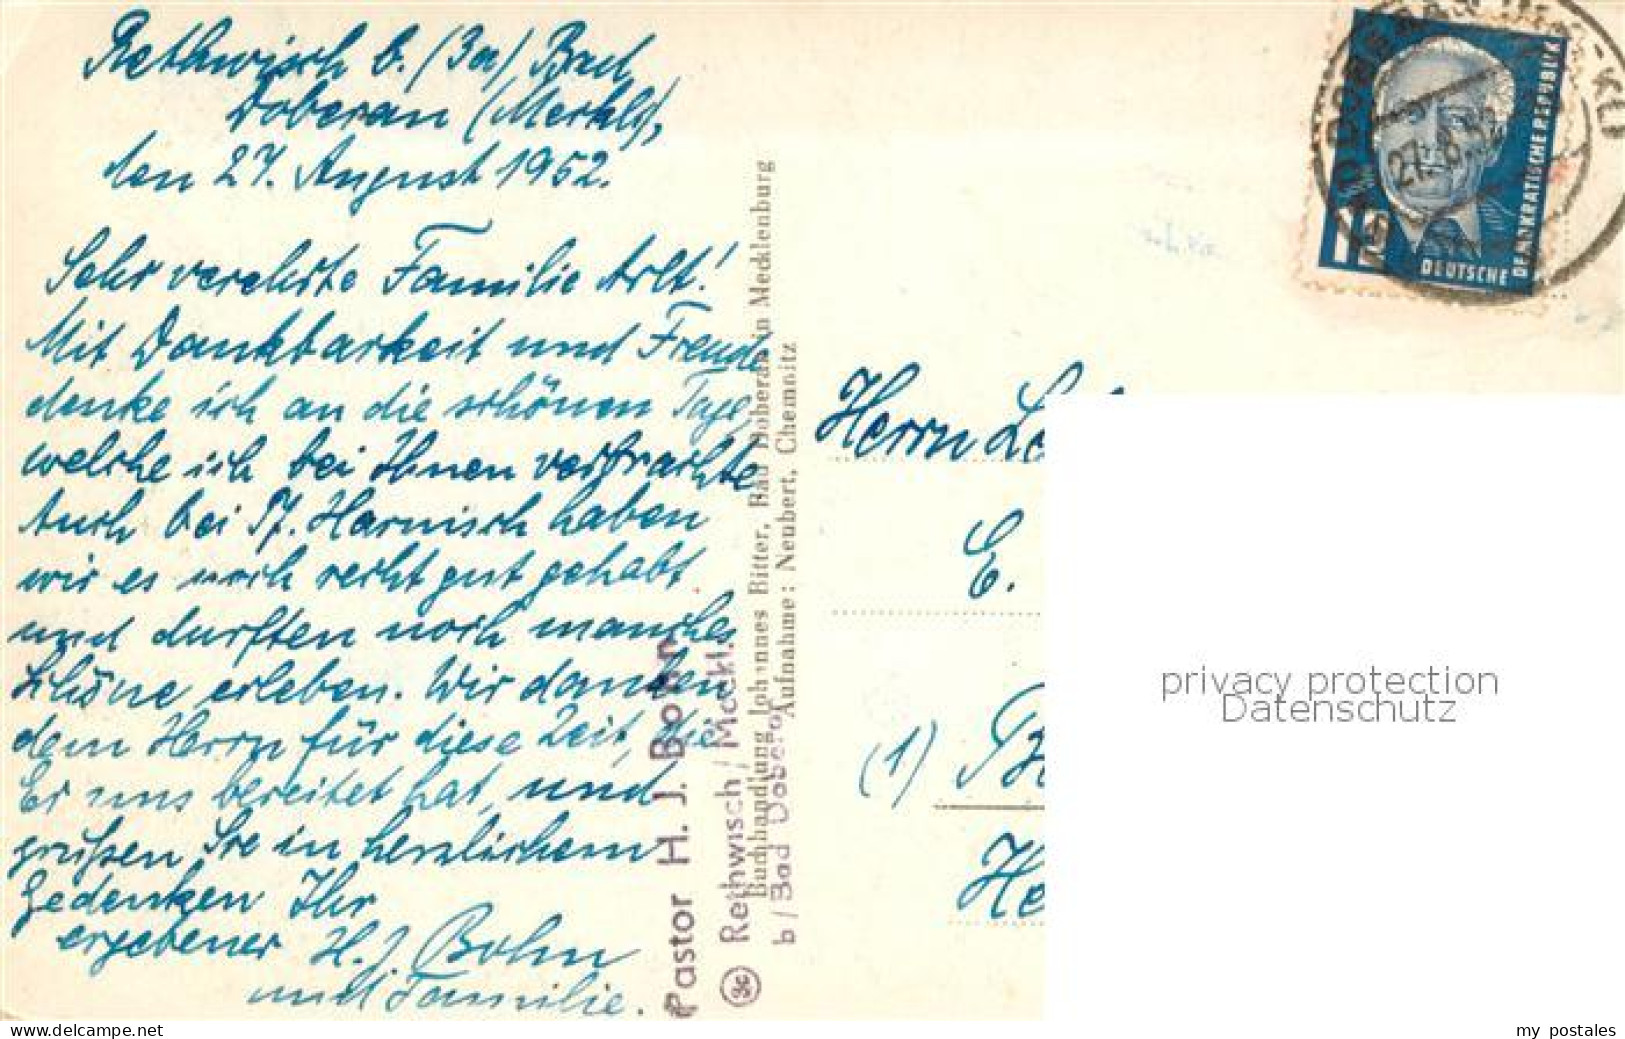 Rethwisch b. (3a) Bad
Doberan (Mecklg),
den 27. August 1952.
Sehr verehrte Familie Arlt!
Mit Dankbarkeit und Freude
denke ich an die schönen Tage,
welche ich bei Ihnen verbrachte.
Auch bei Pf. Harnisch haben
wir es noch recht gut gehabt
und durften noch manches
Schöne erleben. Wir danken
dem Herrn für diese Zeit, die
Er uns bereitet hat, und
grüßen Sie in herzlichem
Gedenken Ihr
ergebener H. J. Bohn
und Familie.
Pastor H. J. Bohn
(3c) Rethwisch / Meckl.
b / Bad Doberan
Buchhandlung Johannes Bitter, Bad Doberan in Mecklenburg
Aufnahme: Neubert, Chemnitz
12
DEUTSCHE
DEMOKRATISCHE REPUBLIK
27.8.52
Herrn
E.
(1)
He
privacy protection
Datenschutz
www.delcampe.net
my postales